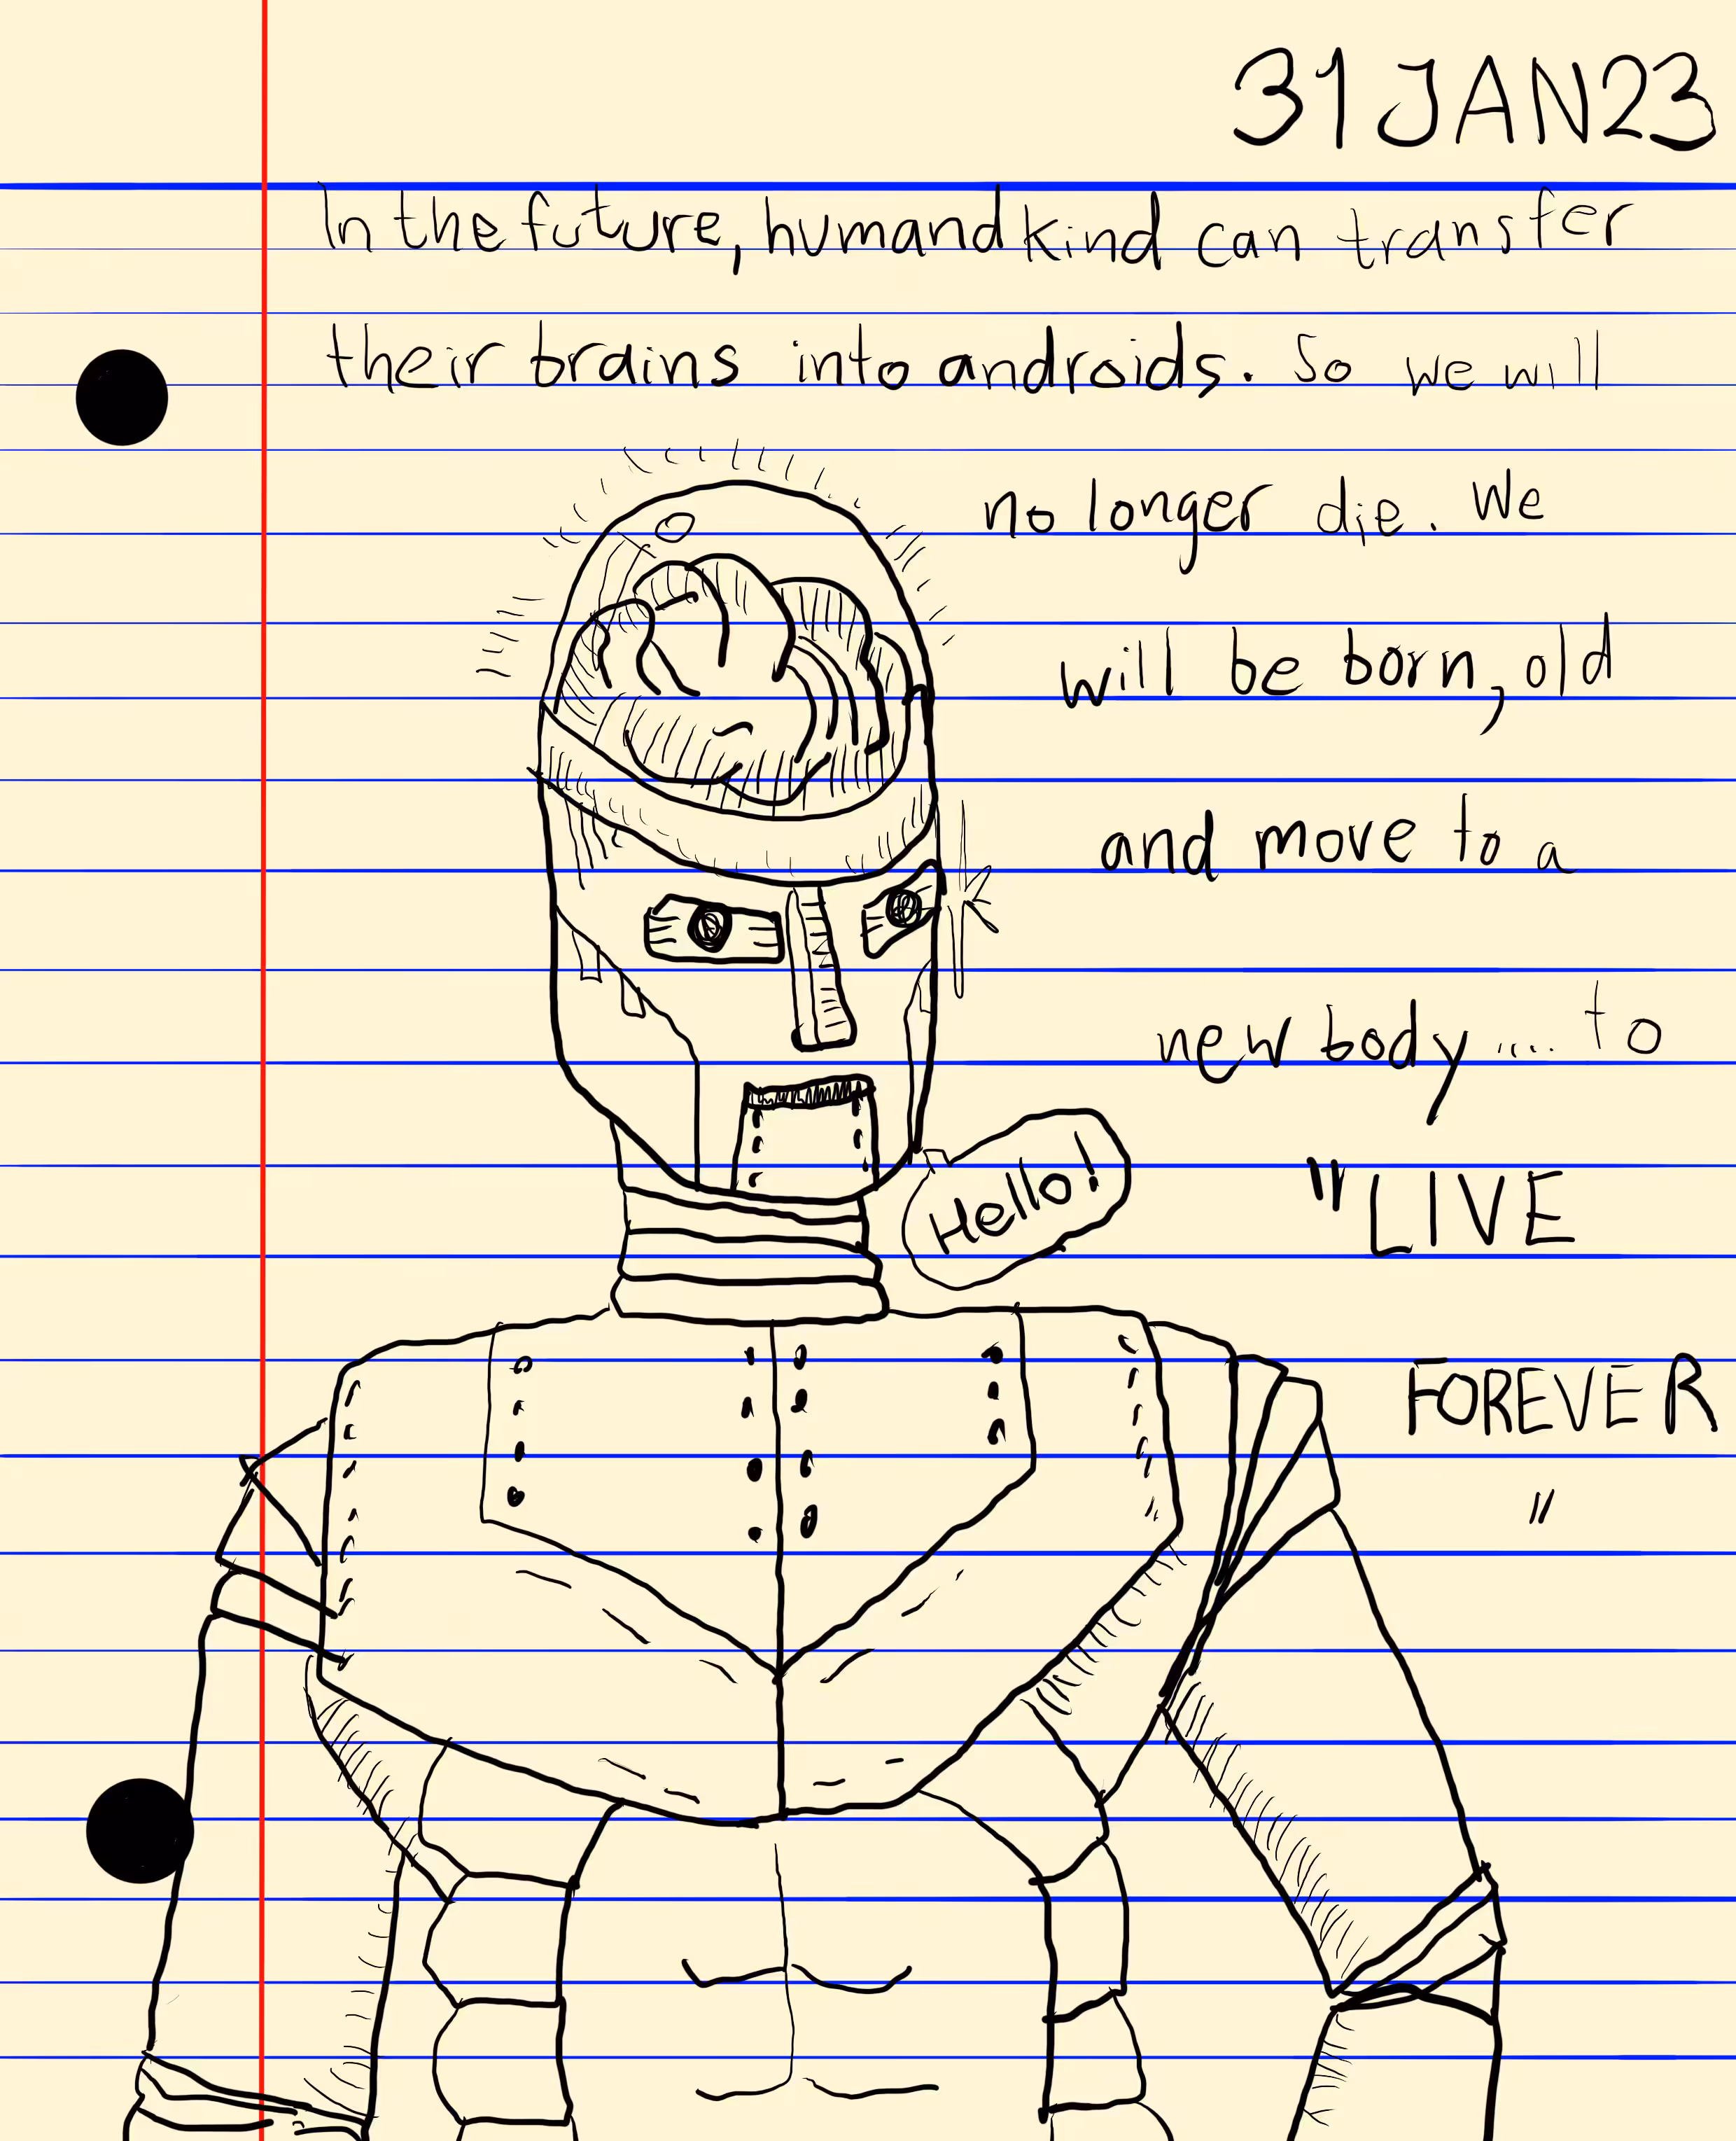 31JAN23
In the future, humandkind can transfer
their brains into androids. So we will
no longer die. We
will be born, old
and move to a
new body.... to
Hello!
"LIVE
FOREVER
"